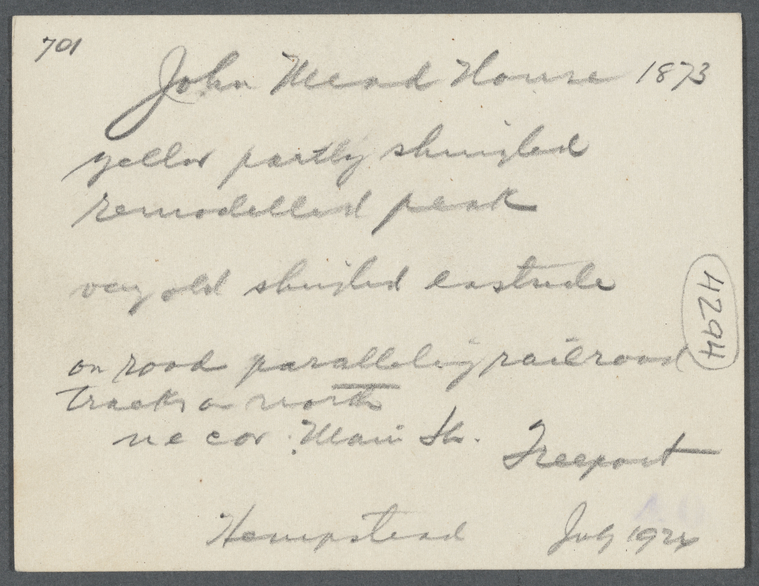 701
John Mead House 1873
yellow partly shingled
remodelled peak
very old shingled eastside
4294
on road paralleling railroad
tracks on north
n e cor. Main St.
Freeport
Hempstead July 1924